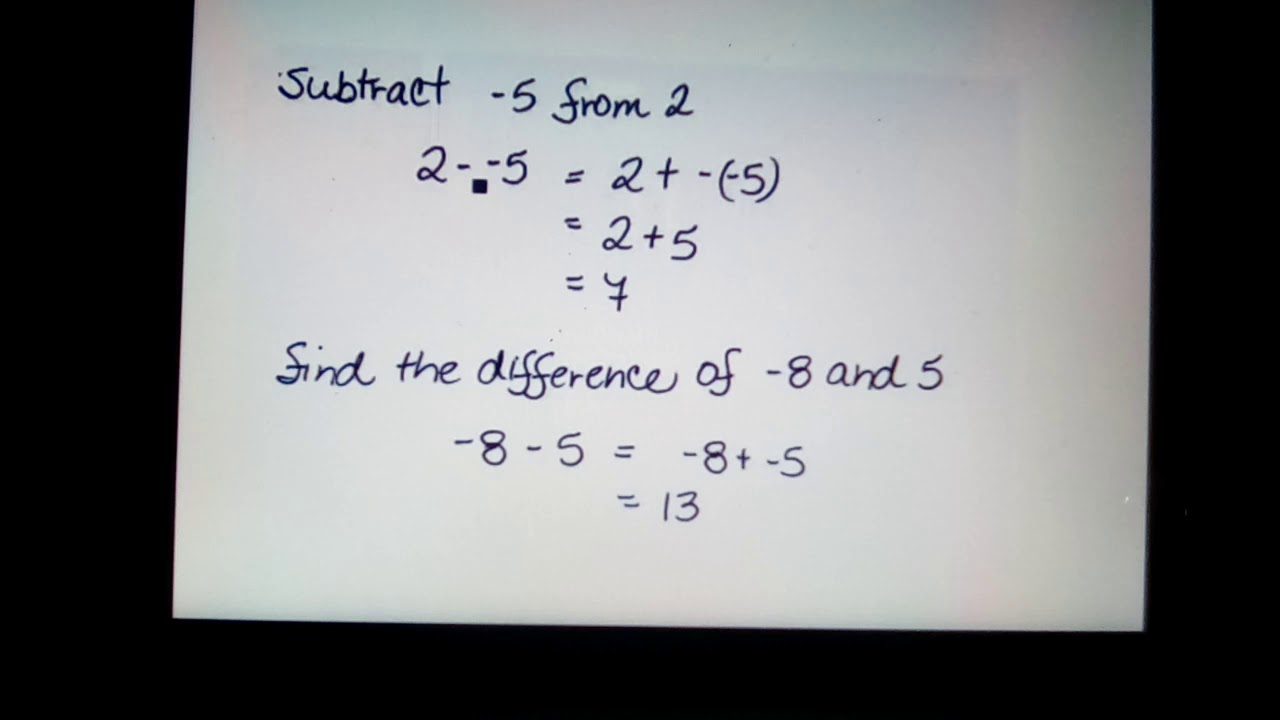 Subtract -5 from 2
2 - -5 = 2 + -(-5)
= 2 + 5
= 7
find the difference of -8 and 5
-8 - 5 = -8 + -5
= 13